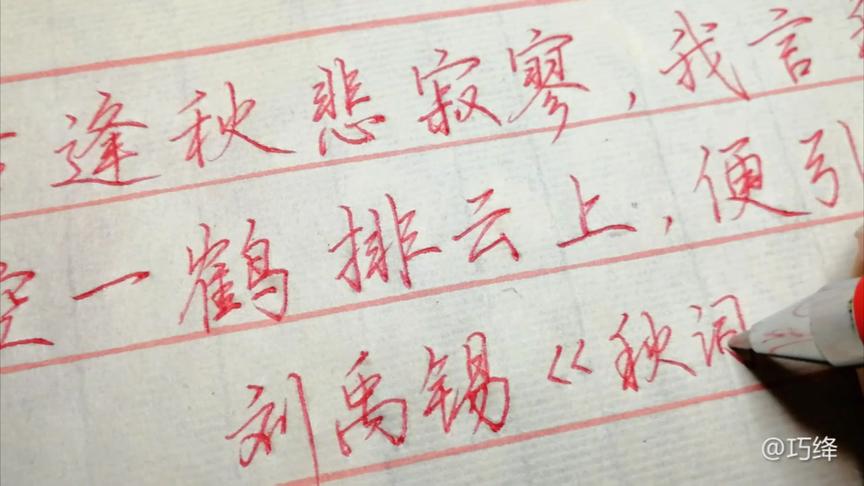 逢秋悲寂寥,我言
空一鹤排云上,便引
刘禹锡《秋词
@巧绛